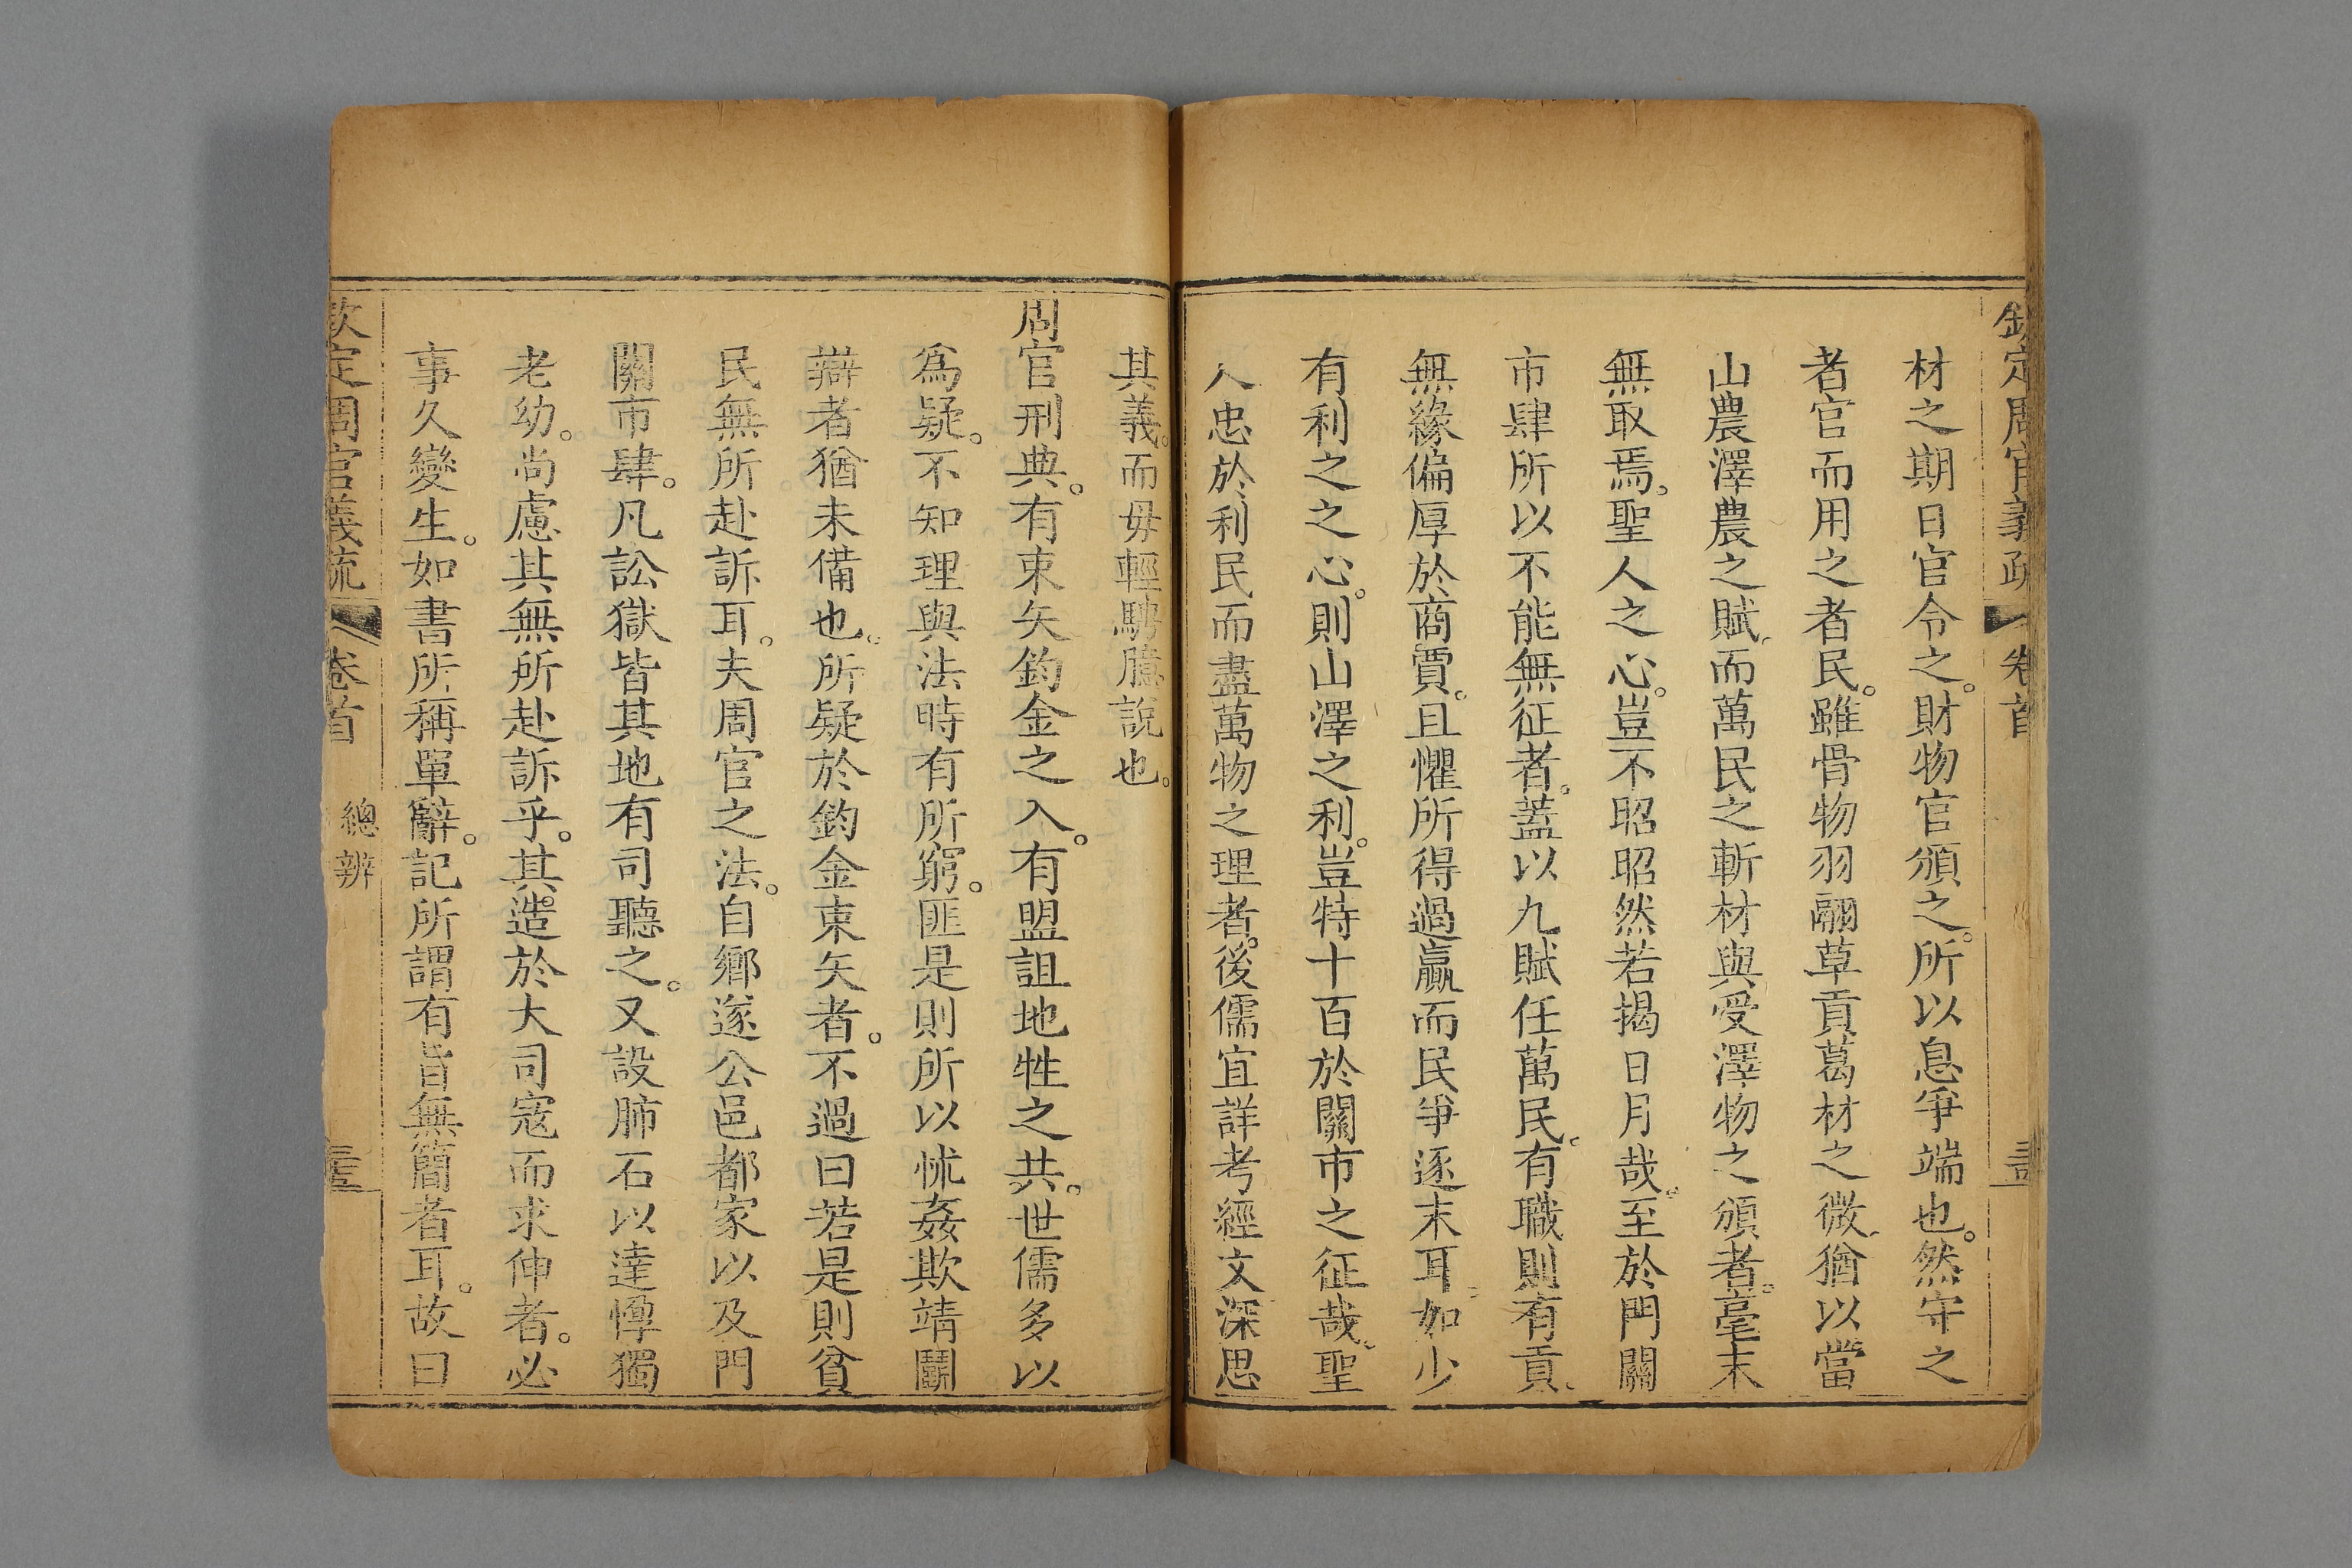 欽定周官義疏 卷首
材之期日官令之。財物官頒之。所以息爭端也。然守之
者官而用之者民。雖骨物羽翮草貢葛材之微。猶以當
山農澤農之賦。而萬民之斬材與受澤物之頒者。毫末
無取焉。聖人之心。豈不昭昭然若揭日月哉。至於門關
市肆所以不能無征者。蓋以九賦任萬民。有職則有貢。
無緣偏厚於商賈。且懼所得過贏而民爭逐末耳。如少
有利之之心。則山澤之利。豈特十百於關市之征哉。聖
人忠於利民而盡萬物之理者。後儒宜詳考經文深思
其義。而毋輕騁臆說也。
周官刑典。有束矢鈞金之入。有盟詛地牲之共。世儒多以
為疑。不知理與法時有所窮。匪是則所以怵姦欺靖鬭
辯者猶未備也。所疑於鈞金束矢者。不過曰若是則貧
民無所赴訴耳。夫周官之法。自鄉遂公邑都家以及門
關市肆。凡訟獄皆其地有司聽之。又設肺石以達惸獨
老幼。尚慮其無所赴訴乎。其造於大司寇而求伸者。必
事久變生。如書所稱單辭。記所謂有旨無簡者耳。故曰
欽定周官義疏 卷首 總辨